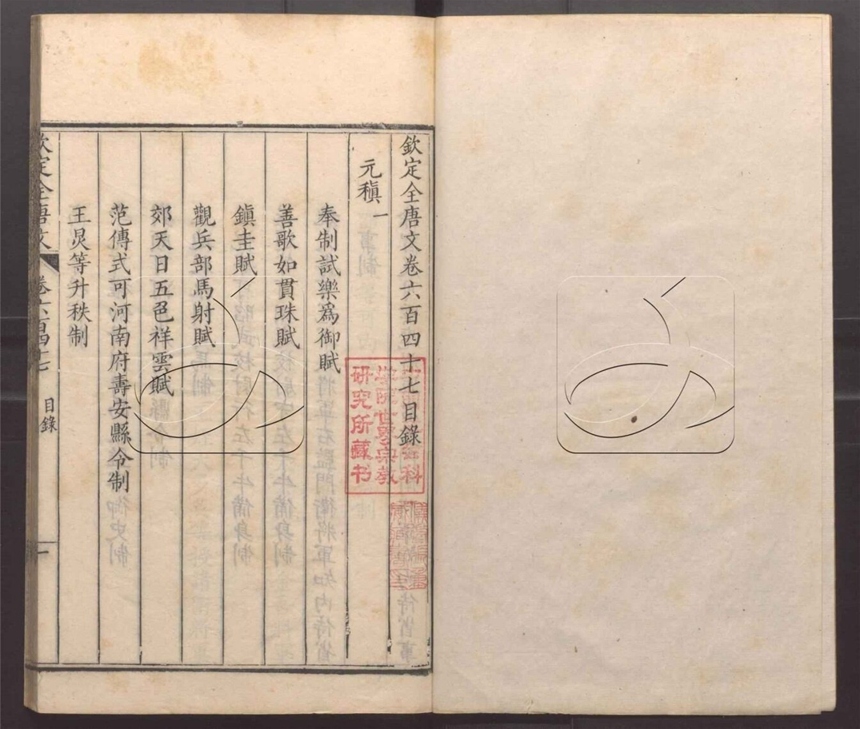 欽定全唐文卷六百四十七目錄
元稹一
奉制試樂爲御賦
善歌如貫珠賦
鎮圭賦
觀兵部馬射賦
郊天日五色祥雲賦
范傳式可河南府壽安縣令制
王炅等升秩制
欽定全唐文
卷六百四十七
目錄
一
研究所藏书
学院世界宗教
科